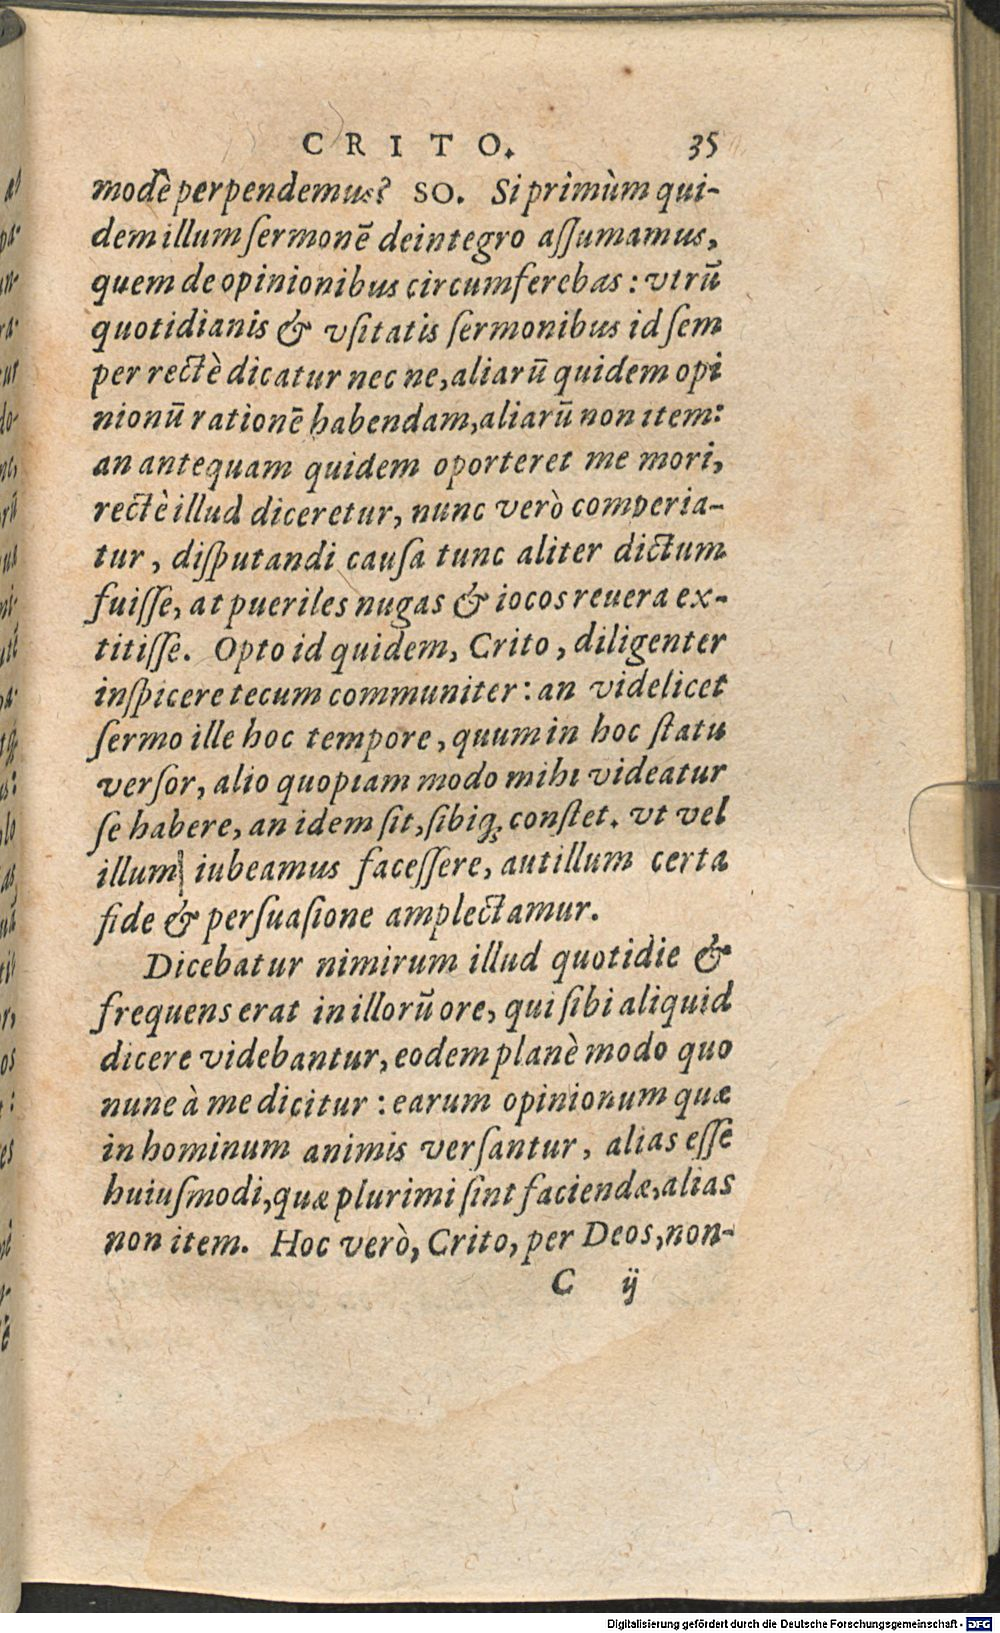 CRITO. 35
modè perpendemus? SO. Si primùm qui-
dem illum ſermonē deintegro aſſumamus,
quem de opinionibus circumferebas: vtrū
quotidianis & vſitatis ſermonibus id ſem
per rectè dicatur nec ne, aliarū quidem opi
nionū rationē habendam, aliarū non item:
an antequam quidem oporteret me mori,
rectè illud diceretur, nunc verò comperia-
tur, diſputandi cauſa tunc aliter dictum
fuiſſe, at pueriles nugas & iocos reuera ex-
titiſſe. Opto id quidem, Crito, diligenter
inſpicere tecum communiter: an videlicet
ſermo ille hoc tempore, quum in hoc ſtatu
verſor, alio quopiam modo mihi videatur
ſe habere, an idem ſit, ſibiq; conſtet. vt vel
illum iubeamus faceſſere, aut illum certa
fide & perſuaſione amplectamur.
Dicebatur nimirum illud quotidie &
frequens erat in illorū ore, qui ſibi aliquid
dicere videbantur, eodem planè modo quo
nunc à me dicitur: earum opinionum quæ
in hominum animis verſantur, alias eſſe
huiuſmodi, quæ plurimi ſint faciendæ, alias
non item. Hoc verò, Crito, per Deos, non-
C ij
Digitalisierung gefördert durch die Deutsche Forschungsgemeinschaft - DFG